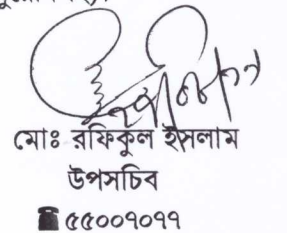 মোঃ রফিকুল ইসলাম
উপসচিব
☎৫৫০০৭০৭৭